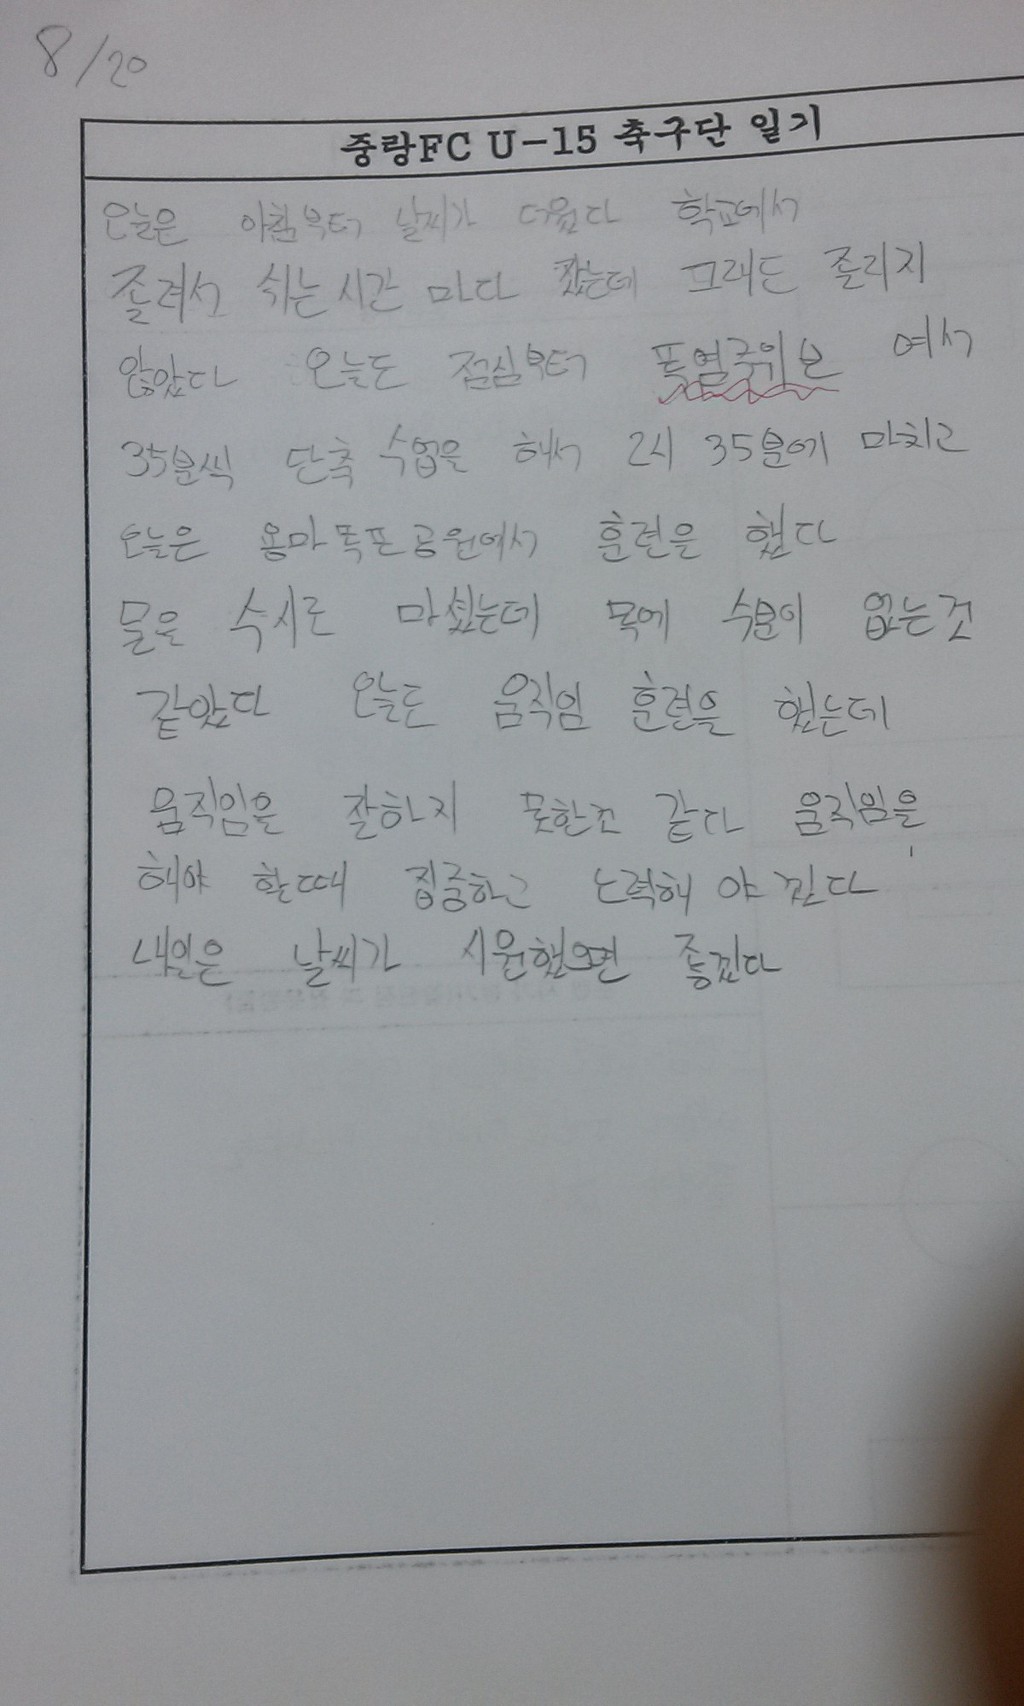 8/20
중랑FC U-15 축구단 일기
오늘은 아침부터 날씨가 더웠다 학교에서
졸려서 쉬는시간 마다 잤는데 그래도 졸리지
않았다 오늘도 점심부터 폭열주위보 여서
35분씩 단축 수업을 해서 2시 35분에 마치고
오늘은 용마폭포공원에서 훈련을 했다
물을 수시로 마셨는데 목에 수분이 없는것
같았다 오늘도 움직임 훈련을 했는데
움직임을 잘하지 못한것 같다 움직임을
해야 할때 집중하고 노력해 야 겠다
내일은 날씨가 시원했으면 좋겠다